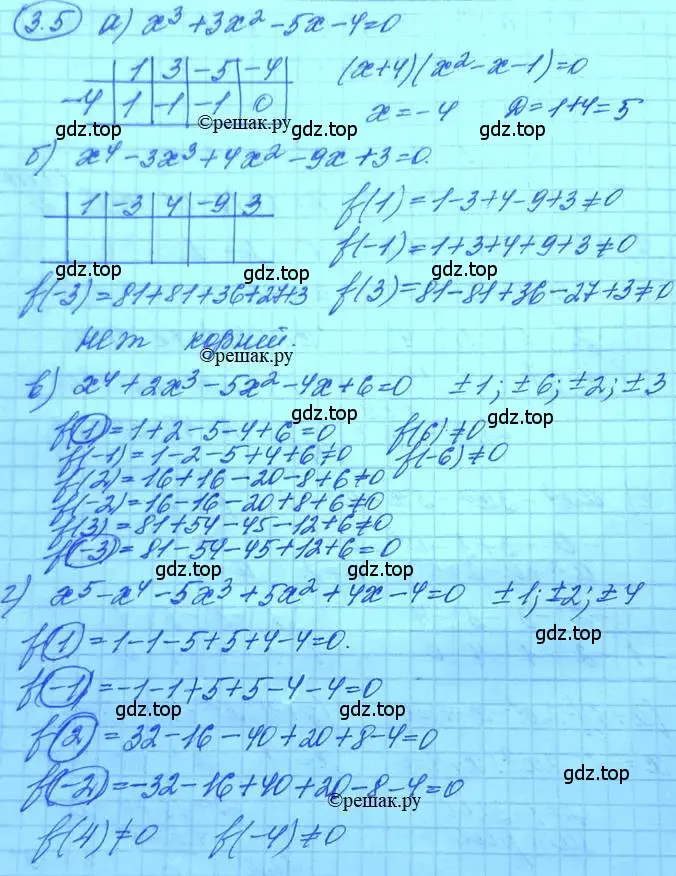 3.5 а) x³+3x²-5x-4=0
1 3 -5 -4 (x+4)(x²-x-1)=0
-4 1 -1 -1 0 x=-4 D=1+4=5
©решак.ру
gdz.top gdz.top gdz.top
б) x⁴-3x³+4x²-9x+3=0.
1 -3 4 -9 3 f(1)=1-3+4-9+3≠0
f(-1)=1+3+4+9+3≠0
gdz.top gdz.top gdz.top
f(-3)=81+81+36+27+3 f(3)=81-81+36-27+3≠0
нет корний.
©решак.ру
в) x⁴+2x³-5x²-4x+6=0 ±1; ±6; ±2; ±3
f(1)=1+2-5-4+6=0 f(6)≠0
gdz.top
f(-1)=1-2-5+4+6≠0 f(-6)≠0
f(2)=16+16-20-8+6≠0
f(-2)=16-16-20+8+6≠0
gdz.top
f(3)=81+54-45-12+6≠0
f(-3)=81-54-45+12+6=0
gdz.top
г) x⁵-x⁴-5x³+5x²+4x-4=0 ±1; ±2; ±4
f(1)=1-1-5+5+4-4=0.
gdz.top
f(-1)=-1-1+5+5-4-4=0
gdz.top gdz.top
f(2)=32-16-40+20+8-4=0
f(-2)=-32-16+40+20-8-4=0
gdz.top
©решак.ру
f(4)≠0 f(-4)≠0